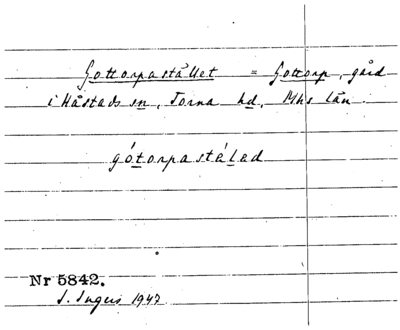 Gottorpastället = Gottorp, gård
i Håstads sn, Torna hd, Mhs län.
gótorpastélled
Nr 5842.
S. Ingers 1947